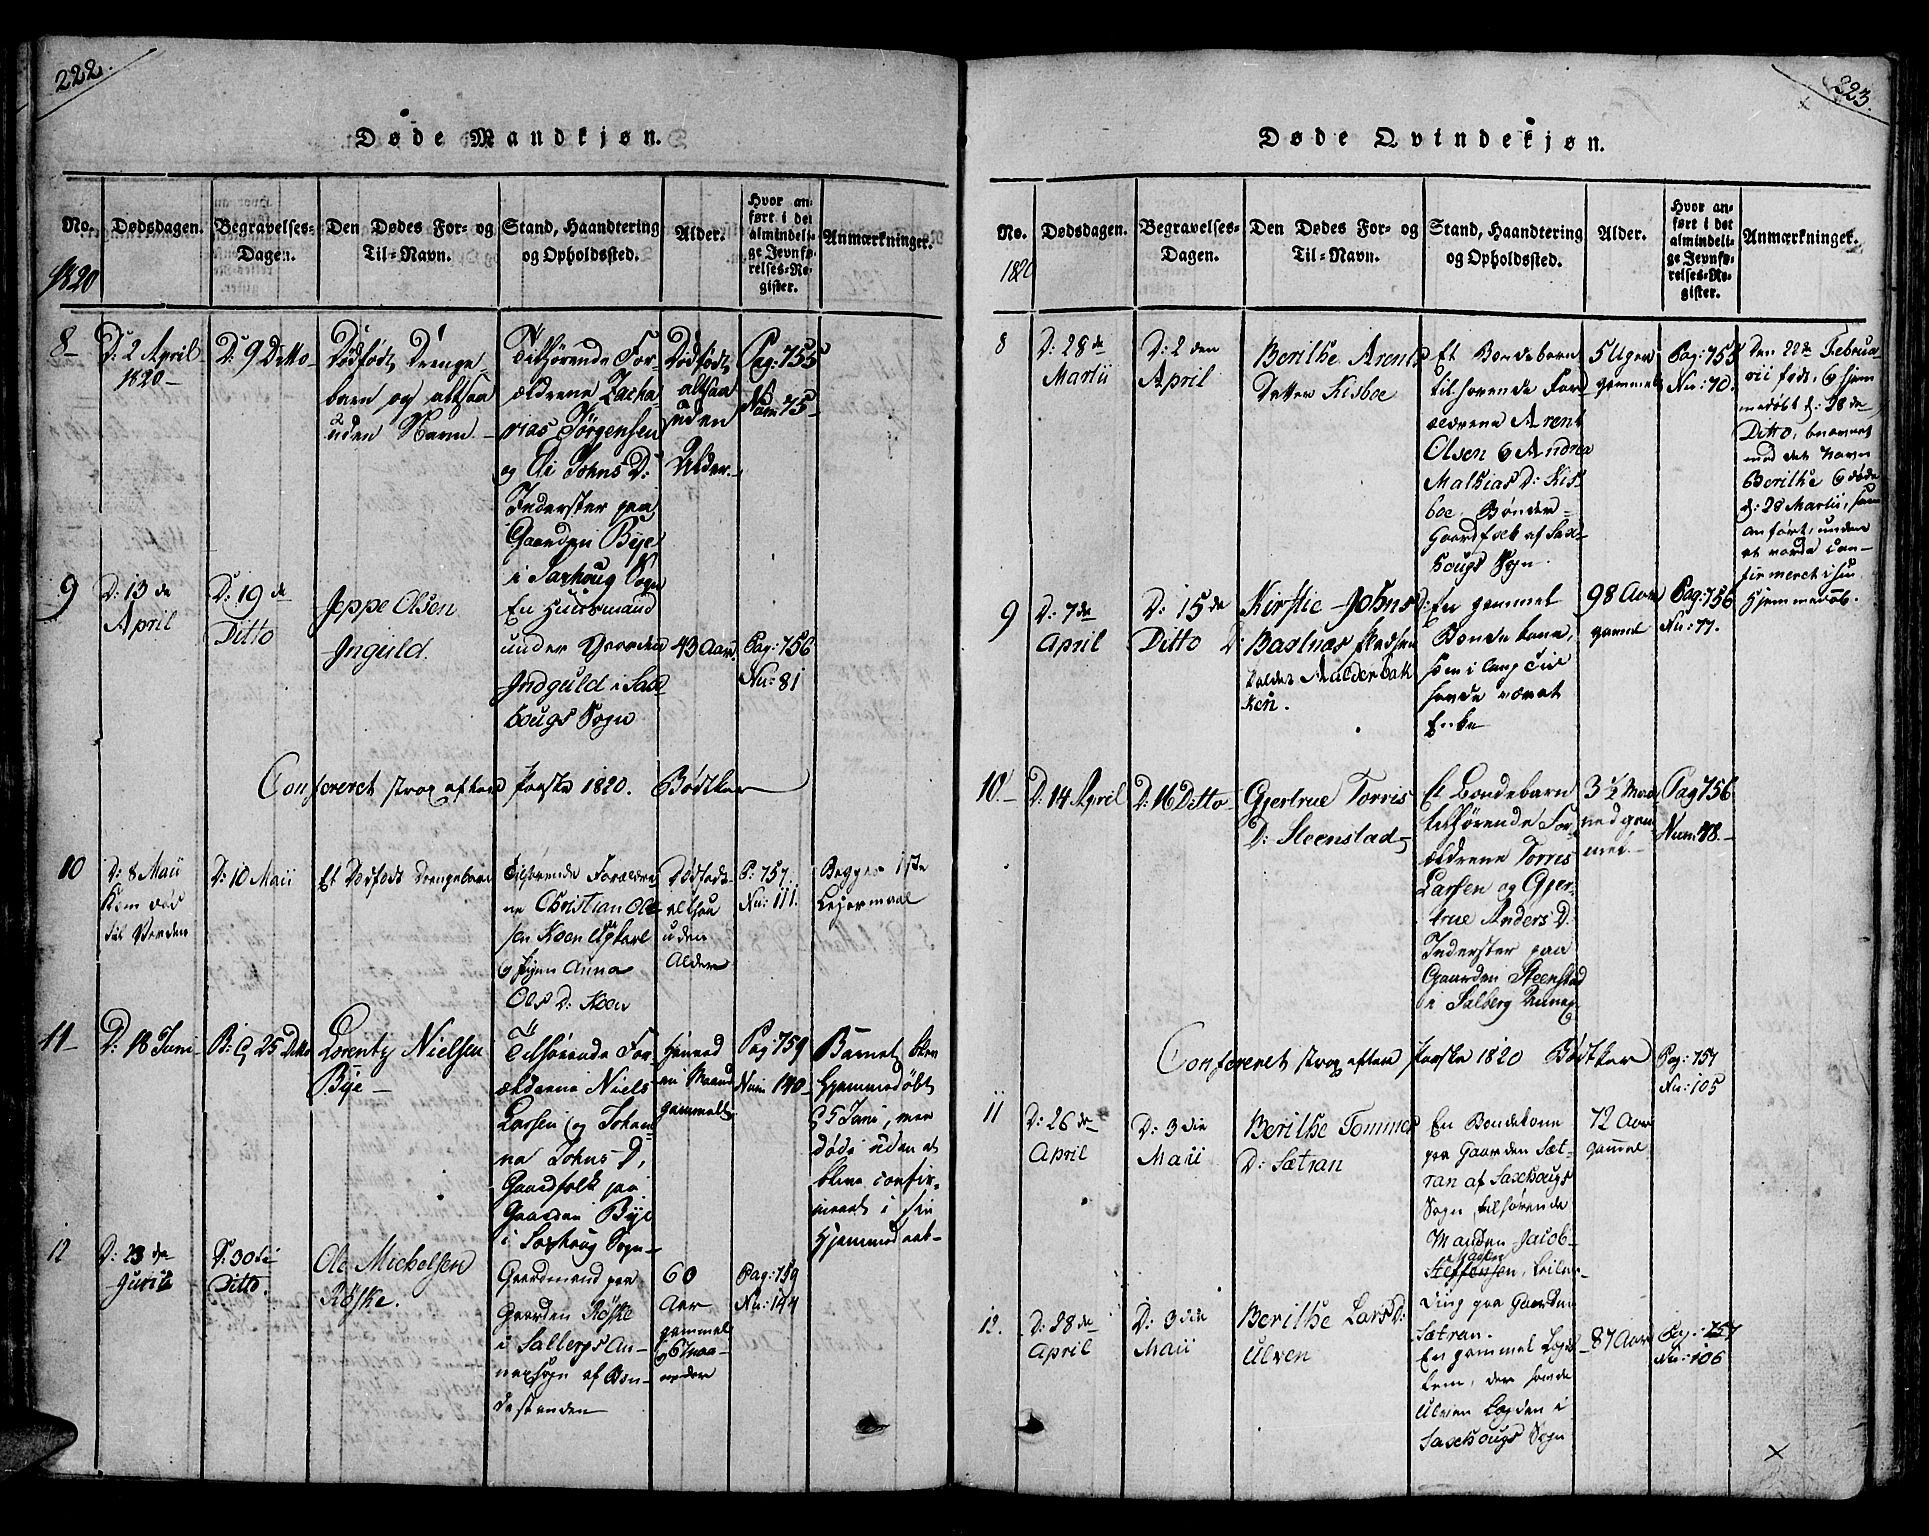 222.
Døde Mandkjøn.
No.
Dødsdagen.
Begravelses-
Dagen.
Den Dødes For- og
Til-Navn.
Stand, Haandtering
og Opholdssted.
Alder.
Hvor an-
ført i det
almindeli-
ge Jevnfø-
relses-Re-
gister.
Anmærkninger.
1820
8
D: 2 April
1820
D: 9 Ditto
Dödfödt Drenge
barn og altsaa
uden Navn
Tilhörende For-
ældrene Zacha
rias Jörgensen
og Ane Johns D:
Inderster paa
Gaarden Bye
i Saxhoug Sogn
Dödfödt
altsaa
uden
Alder
Pag: 755
Num 75
9
D: 13 de
April
D: 19 de
Ditto
Jeppe Olsen
Inguld.
En Huusmand
under Gaarden
Indguld i Sax
hougs Sogn
43 Aar
Pag: 756
Nu: 81
Confereret strax efter Paaske 1820. Bödtker
10
D: 8 Maii
Kom död
til Verden
D: 10 Maii
Et Dödfödt Drengebarn
Tilhörende Forældre
ne Christian Ol-
sen Koen Ugkarl
og Pigen Anna
Ols D: Koen
Dödfödt
altsaa
uden
Alder
P: 757
Nu: 111.
Begges 1ste
Lejermaal
11
D: 18 Juni
D: 25 Ditto
Lorentz Nielsen
Bye
Tilhörende For-
ældrene Niels
Larsen og Johan-
na Johns D,
Gaardfolk paa
Gaarden Bye
i Saxhoug Sogn
Maaned
gammelt
Pag: 759
Num 140
Barnet blev
Hjemmedöbt
5 Juni, men
döde uden at
blive confir-
meret i sin
Hjemmedaab
12
D: 23 de
Junii
D: 30 de
Ditto.
Ole Michelsen
Röske.
Gaardmand paa
Gaarden Röske
i Salbergs An-
nexsogn af Bon-
destanden
60
Aar
gammel
og 6 Maa-
neder
Pag: 759
Nu: 144
223.
Døde Qvindekjøn.
No.
Dødsdagen.
Begravelses-
Dagen.
Den Dødes For- og
Til-Navn.
Stand, Haandtering
og Opholdssted.
Alder.
Hvor an-
ført i det
almindeli-
ge Jevnfø-
relses-Re-
gister.
Anmærkninger.
1820
8
D: 28 de
Martii
D: 2 den
April
Berithe Arents
Datter Kisboe
Et Bondebarn
tilhörende For
ældrene Arent
Olsen og Andrea
Mathias D: Kis
boe. Bönder-
Gaardfolk af Sax-
hougs Sogn
5 Uger
gammel
Pag: 755
Nu: 70.
Den 22de Februa
rii född, og hjem
medöbt d: 28 de
Ditto, benævnt
med det Navn
Berithe og döde
d: 28 Martii, som
anfört, uden
at vorde con-
firmeret i sin
Hjemmedöb.
9
D: 7 de
April
D: 15 de
Ditto
Kirstie Johns D:
Bastnæs Pladsen
kaldet Aalderbak
ken.
En gammel
Bondekone,
som i lang Tid
havde været
Enke
98 Aar
gamel
Pag: 756
Nu: 77.
10.
D: 14 April
D: 16 Ditto
Gjertrue Torris
D: Steenstad
Et Bondebarn
tilhörende For-
ældrene Torris
Larsen og Gjer-
true Anders D.
Inderster paa
Gaarden Steenstad
i Salberg Annex
3 1/2 Maa
ned gam
mel
Pag 756
Num: 78.
Confereret strax efter Paaske 1820 Bödtker
Pag: 757
Nu: 105
11
D: 26 de
April
D: 3 die
Maii
Berithe Tommes
D: Sætran
En Bondekone
paa Gaarden Sæt-
ran af Saxhougs
Sogn, tilhörende
Manden Jacob
Steffensen, Leilen-
ding paa Gaarden
Sætran.
72 Aar
gamel
12.
D: 28 de
April
D: 3 die
Maii
Berithe Lars D:
Ulven
En gammel Lægds
lem, der havde
Ulven Lægden i
Saxhougs Sogn
87 Aar
Pag: 757
Nu: 106